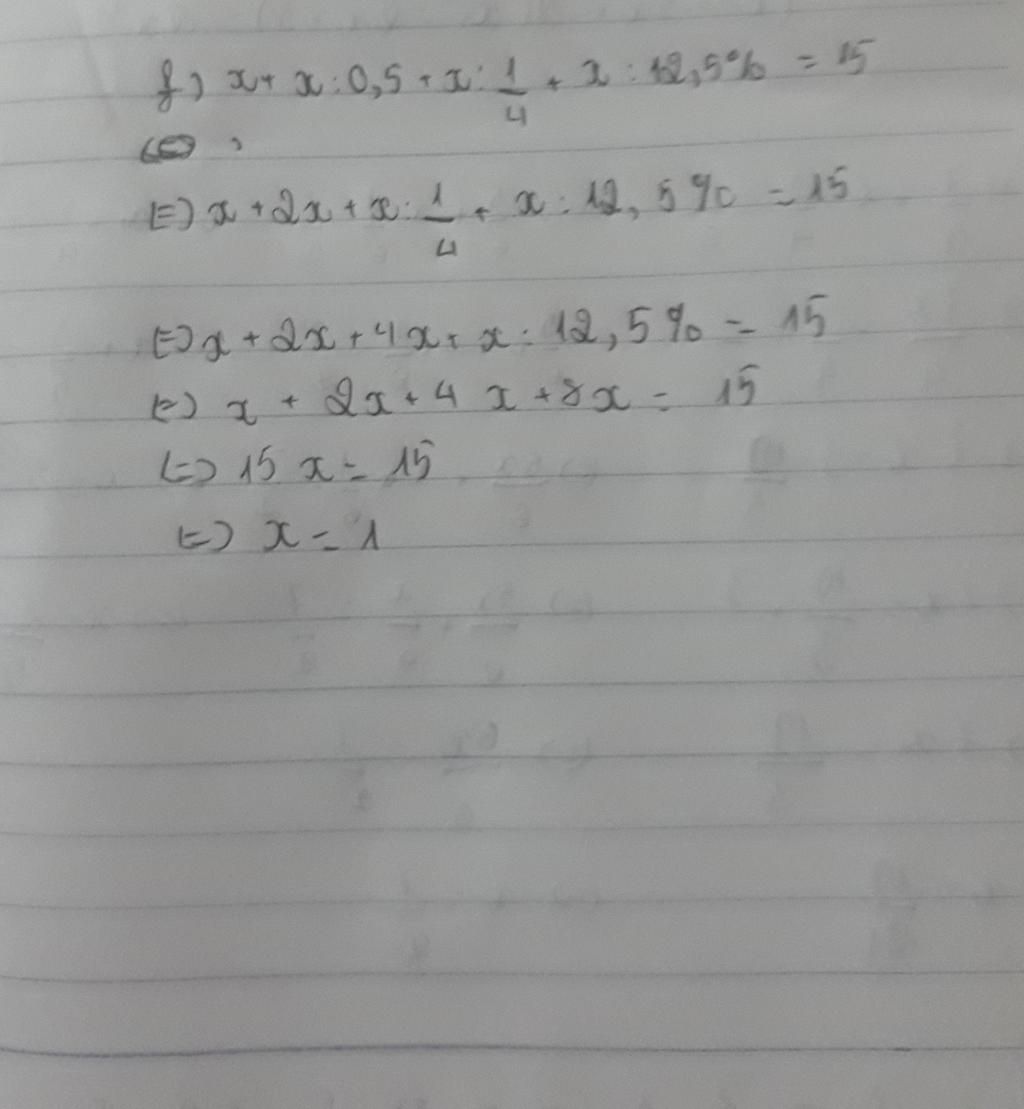 f) x + x : 0,5 + x : 1/4 + x : 12,5% = 15
<=>
<=> x + 2x + x : 1/4 + x : 12,5% = 15
<=> x + 2x + 4x + x : 12,5% = 15
<=> x + 2x + 4x + 8x = 15
<=> 15x = 15
<=> x = 1